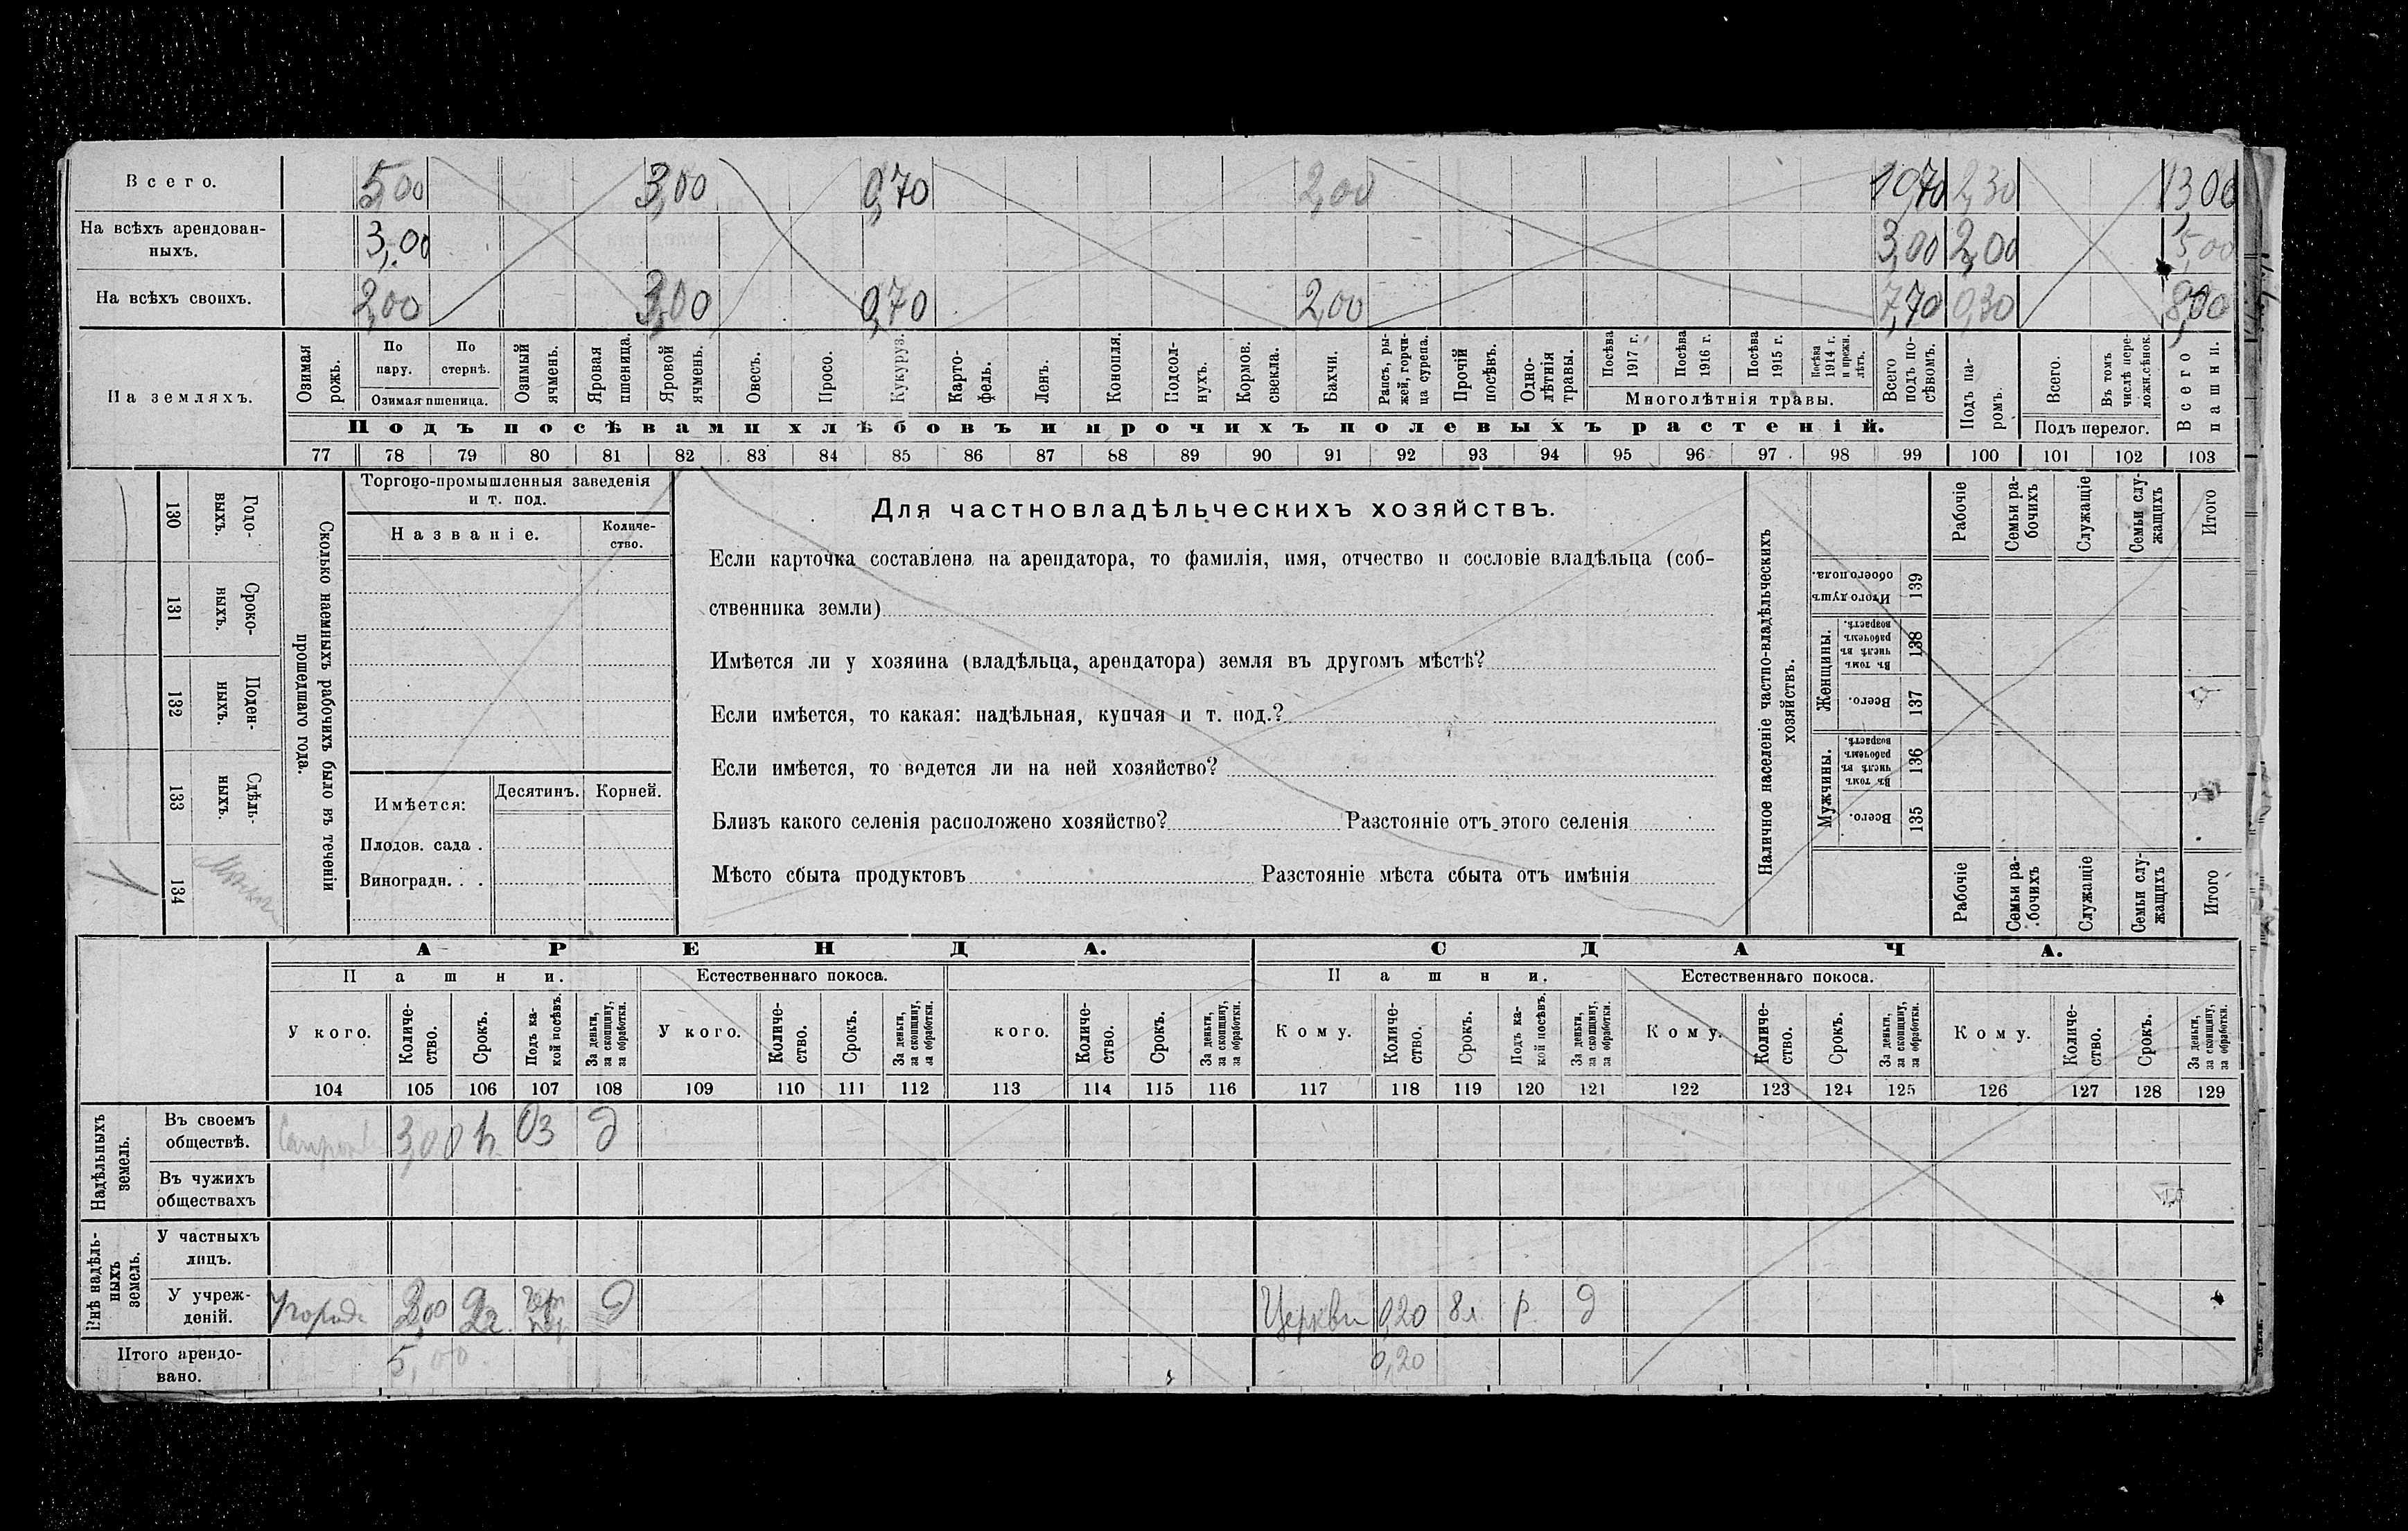 Всего. 5,00 3,00 0,70 2,00 10,70 2,30 13,00
На всѣхъ арендован-
ныхъ. 3,00 3,00 2,00 5,00
На всѣхъ своихъ. 2,00 3,00 0,70 2,00 7,70 0,30 8,00
На земляхъ.
Озимая рожь.
По пару.
По стернѣ.
Озимая пшеница.
Озимый ячмень.
Яровая пшеница.
Яровой ячмень.
Овесъ.
Просо.
Кукуруз.
Карто-
фель.
Ленъ.
Конопля.
Подсол-
нухъ.
Кормов.
свекла.
Бахчи.
Рапсъ, ры-
жей, горчи-
ца сурепа.
Прочій
посѣвъ.
Одно-
лѣтнія
травы.
Посѣва
1917 г.
Посѣва
1916 г.
Посѣва
1915 г.
Посѣва
1914 г.
и прежн.
лѣтъ.
Многолѣтнія травы.
Всего
подъ по-
сѣвомъ.
Подъ па-
ромъ.
Всего.
Въ томъ
числѣ пере-
ложн.сѣнок.
Подъ перелог.
Всего
пашни.
Подъ посѣвами хлѣбовъ и прочихъ полевыхъ растеній.
77 78 79 80 81 82 83 84 85 86 87 88 89 90 91 92 93 94 95 96 97 98 99 100 101 102 103
130 Годо-
выхъ.
131 Сроко-
ныхъ.
132 Поден-
ныхъ.
133 Сдѣль-
ныхъ.
134
Сколько наемныхъ рабочихъ было въ теченіи
прошедшаго года.
Торгово-промышленныя заведенія
и т. под.
Названіе.
Количе-
ство.
Имѣется:
Десятинъ. Корней.
Плодов. сада .
Виноградн. . .
Для частновладѣльческихъ хозяйствъ.
Если карточка составлена на арендатора, то фамилія, имя, отчество и сословіе владѣльца (соб-
ственника земли)
Имѣется ли у хозяина (владѣльца, арендатора) земля въ другомъ мѣстѣ?
Если имѣется, то какая: надѣльная, купчая и т. под.?
Если имѣется, то ведется ли на ней хозяйство?
Близъ какого селенія расположено хозяйство? Разстояніе отъ этого селенія
Мѣсто сбыта продуктовъ Разстояніе мѣста сбыта отъ имѣнія
Наличное населеніе частно-владѣльческихъ
хозяйствъ.
Рабочіе
Семьи ра-
бочихъ
Служащіе
Семьи слу-
жащихъ
Итого
Итого душъ
обоего пола.
139
Женщины.
Въ томъ
числѣ въ
рабочемъ
возрастѣ.
138
Всего.
137
Мужчины.
Въ томъ
числѣ въ
рабочемъ
возрастѣ.
136
Всего.
135
Рабочіе
Семьи ра-
бочихъ
Служащіе
Семьи слу-
жащихъ
Итого
АРЕНДА. СДАЧА.
Пашни. Естественнаго покоса. Пашни. Естественнаго покоса.
У кого.
Количе-
ство.
Срокъ.
Подъ ка-
кой посѣвъ.
За деньги,
за скопщину,
за обработки.
У кого.
Количе-
ство.
Срокъ.
За деньги,
за скопщину,
за обработки.
кого.
Количе-
ство.
Срокъ.
За деньги,
за скопщину,
за обработки.
Кому.
Количе-
ство.
Срокъ.
Подъ ка-
кой посѣвъ.
За деньги,
за скопщину,
за обработки.
Кому.
Количе-
ство.
Срокъ.
За деньги,
за скопщину,
за обработки.
Кому.
Количе-
ство.
Срокъ.
За деньги,
за скопщину,
за обработки.
104 105 106 107 108 109 110 111 112 113 114 115 116 117 118 119 120 121 122 123 124 125 126 127 128 129
Надѣльныхъ
земель.
Въ своемъ
обществѣ. 3,00 Оз д
Въ чужихъ
обществахъ
Внѣ надѣль-
ныхъ
земель.
У частныхъ
лицъ.
У учреж-
деній. У города 2,00 2г. д Церкви 0,20 8л р. д
Итого арендо-
вано. 5,00 0,20